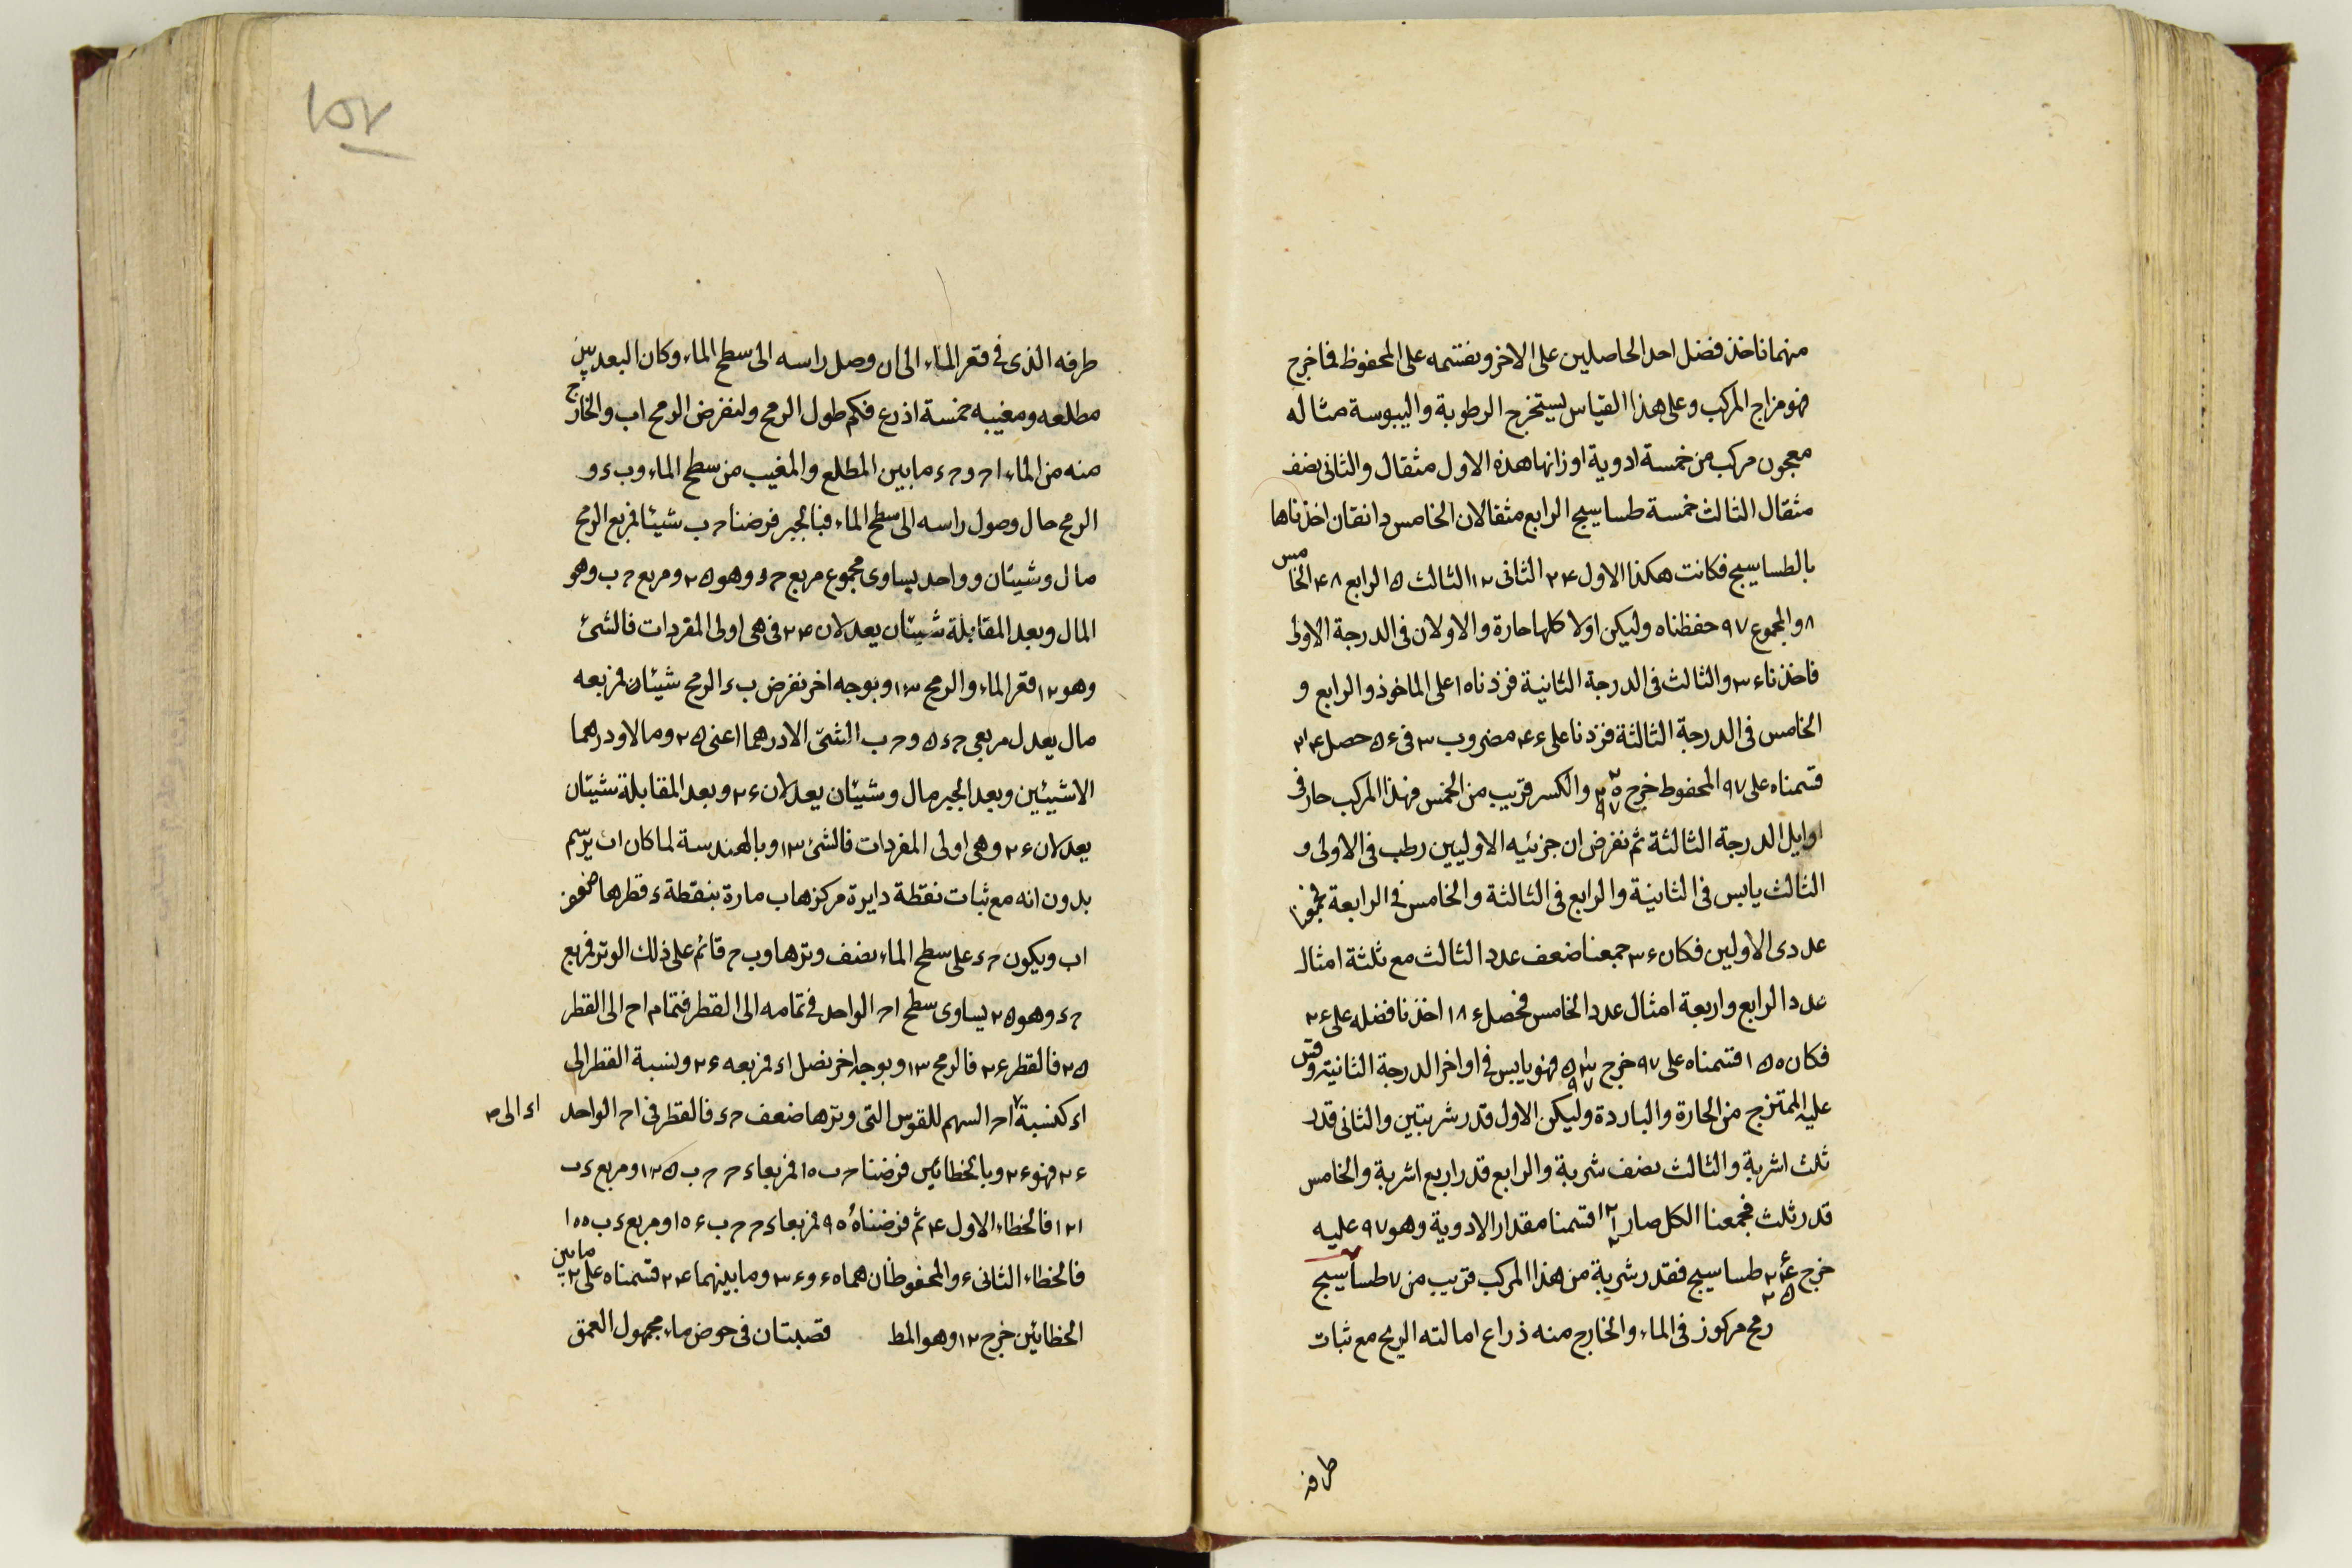 منهما ناخذ فضل احد الحاصلين على الاخر ونقسمه على المحفوظ فما خرج
فهو مزاج المركب وعلى هذا القياس ليستخرج الرطوبة واليبوسة مثاله
معجون مركب من خمسة ادوية اوزانها هذه الاول مثقال والثانى نصف
مثقال الثالث خمسة طساسيج الرابع مثقالان الخامس دانقان اخذناها
بالطساسيج فكانت هكذا الاول ٢۴ الثانى ١٢ الثالث ۵ الرابع ۴٨ الخامس
٨ والمجموع ٩٧ حفظناه وليكن اولا كلها حارة والاولان فى الدرجة الاولى
فاخذناء ٣ والثالث فى الدرجة الثانية فزدناه ١ على الماخوذ والرابع و
الخامس فى الدرجة الثالثة فزدنا على ء۴ مضروب ٣ فى ء۵ حصل ٢١۴
قسمناه على ٩٧ المحفوظ خرج والكسر قريب من الخمس فهذا المركب حار فى
اوايل الدرجة الثالثة ثم نفرض ان جزئيه الاوليين رطب فى الاولى و
الثالث يابس فى الثانية والرابع فى الثالثة والخامس فى الرابعة فجمعنا
عددى الاولين فكان ء٣ جمعنا ضعف عدد الثالث مع ثلثة امثال
عدد الرابع واربعة امثال عدد الخامس فحصل ء١٨ اخذنا فضله على ء٣
فكان ١۵٠ قسمناه على ٩٧ خرج فهو يابس فى اواخر الدرجة الثانية وقس
عليه الممتزج من الحارة والباردة وليكن الاول قدر شربتين والثانى قدر
ثلث اشربة والثالث نصف شربة والرابع قدر اربع اشربة والخامس
قدر ثلث فجمعنا الكل صار قسمنا مقدار الادوية وهو ٩٧ عليه
خرج طساسيج فقدر شربة من هذا المركب قريب من ٧ طساسيج
رمح مركوز فى الماء والخارج منه ذراع امالته الريح مع ثبات
طرفه
١٥٧
طرفه الذى فى قعر الماء الى ان وصل راسه الى سطح الماء وكان البعد بين
مطلعه ومغيبه خمسة اذرع فكم طول الرمح ولنفرض الرمح اب والخارج
منه من الماء اح وحء ما بين المطلع والمغيب من سطح الماء وب ء و
الرمح حال وصول راسه الى سطح الماء فبالجبر فرضنا ح ب شيئا فمربع الرمح
مال وشيئان وواحد يساوى مجموع مربع حء وهو ٢۵ ومربع ح ب وهو
المال وبعد المقابلة شيئان يعدلان ٢۴ فهى اولى المفردات فالشئ
وهو ١٢ قعر الماء والرمح ١٣ وبوجه اخر نفرض ب ء الرمح شيئان فمربعه
مال يعدل مربعى حء ۵ وح ب الشئ الا درهما اعنى ٢۵ ومالا ودرهما
الا شيئين وبعد الجبر مال وشيئان يعدلان ء٢ وبعد المقابلة شيئان
يعدلان ء٢ وهى اولى المفردات فالشئ ١٣ وبالهندسة لما كان ان يرسم
بدوران اب مع ثبات نقطة دايرة مركزها ب مارة بنقطة ء قطرها ضعف
اب ويكون حء على سطح الماء نصف وترها وب ح قائم على ذلك الوتر فمربع
حء وهو ٢۵ يساوى سطح اح الواحد فى تمامه الى القطر فتمام اح الى القطر
٢۵ فالقطر ء٢ فالرمح ١٣ وبوجه اخر نصل اء فمربعه ء٢ ونسبة القطر الى
اء كنسبة اح السهم للقوس التى وترها ضعف حء فالقطر فى اح الواحد
اء الى
ء٢ فهو ء٢ وبالخطائين فرضنا ح ب ١٠ فمربعا ء ح ح ب ١٢۵ ومربع ء ب
١٢١ فالخطاء الاول ۴ ثم فرضناه فمربعا ء ح ح ب ومربع ء ب
فالخطاء الثانى ء والمحفوظان هما وما بينهما ٢۴ قسمناه على ٢ ما بين
الخطائين خرج ١٢ وهو المط قصبتان فى حوض ماء مجهول العمق